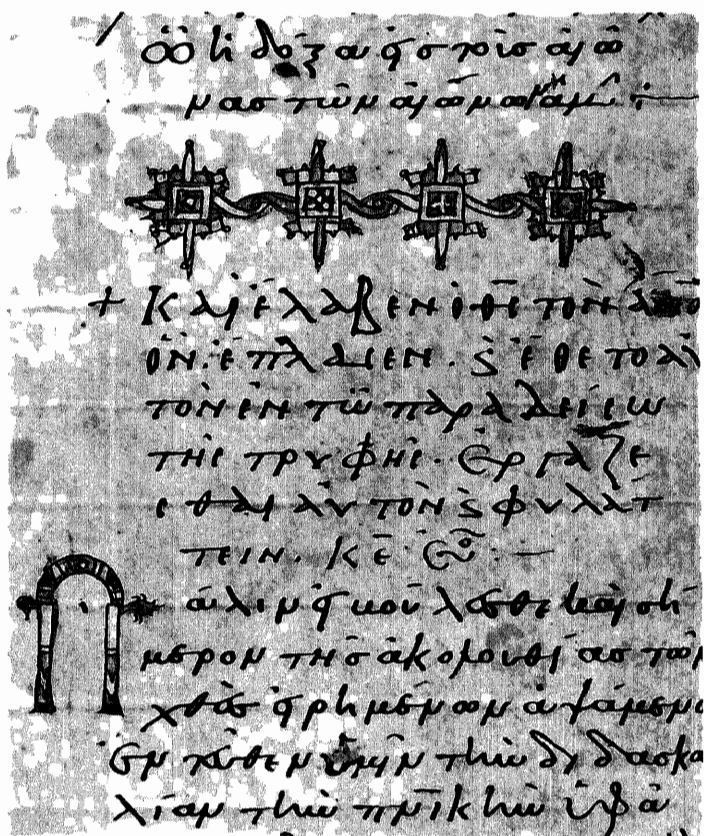 ᾧ ἡ δόξα εἰς τοὺς αἰῶ
νας τῶν αἰώνων ἀμήν
+ Καὶ ἔλαβεν ὁ θ̅ς̅ τὸν
ὃν ἔπλασεν. ϛ ἔθετο αὐ
τὸν ἐν τῶ παραδείσω
τῆς τρυφῆς. ἐργάζε
σθαι αὐτὸν ϛ φυλάτ
τειν. κ̅ε̅
Πάλιν εἰ βούλεσθε καὶ σή
μερον τῆς ἀκολουθίας τῶν
χθὲς εἰρημένων ἁψάμενοι
ἐντεῦθεν ὑμῖν τὴν διδασκα
λίαν τὴν πν̅ικὴν ὑφᾶ